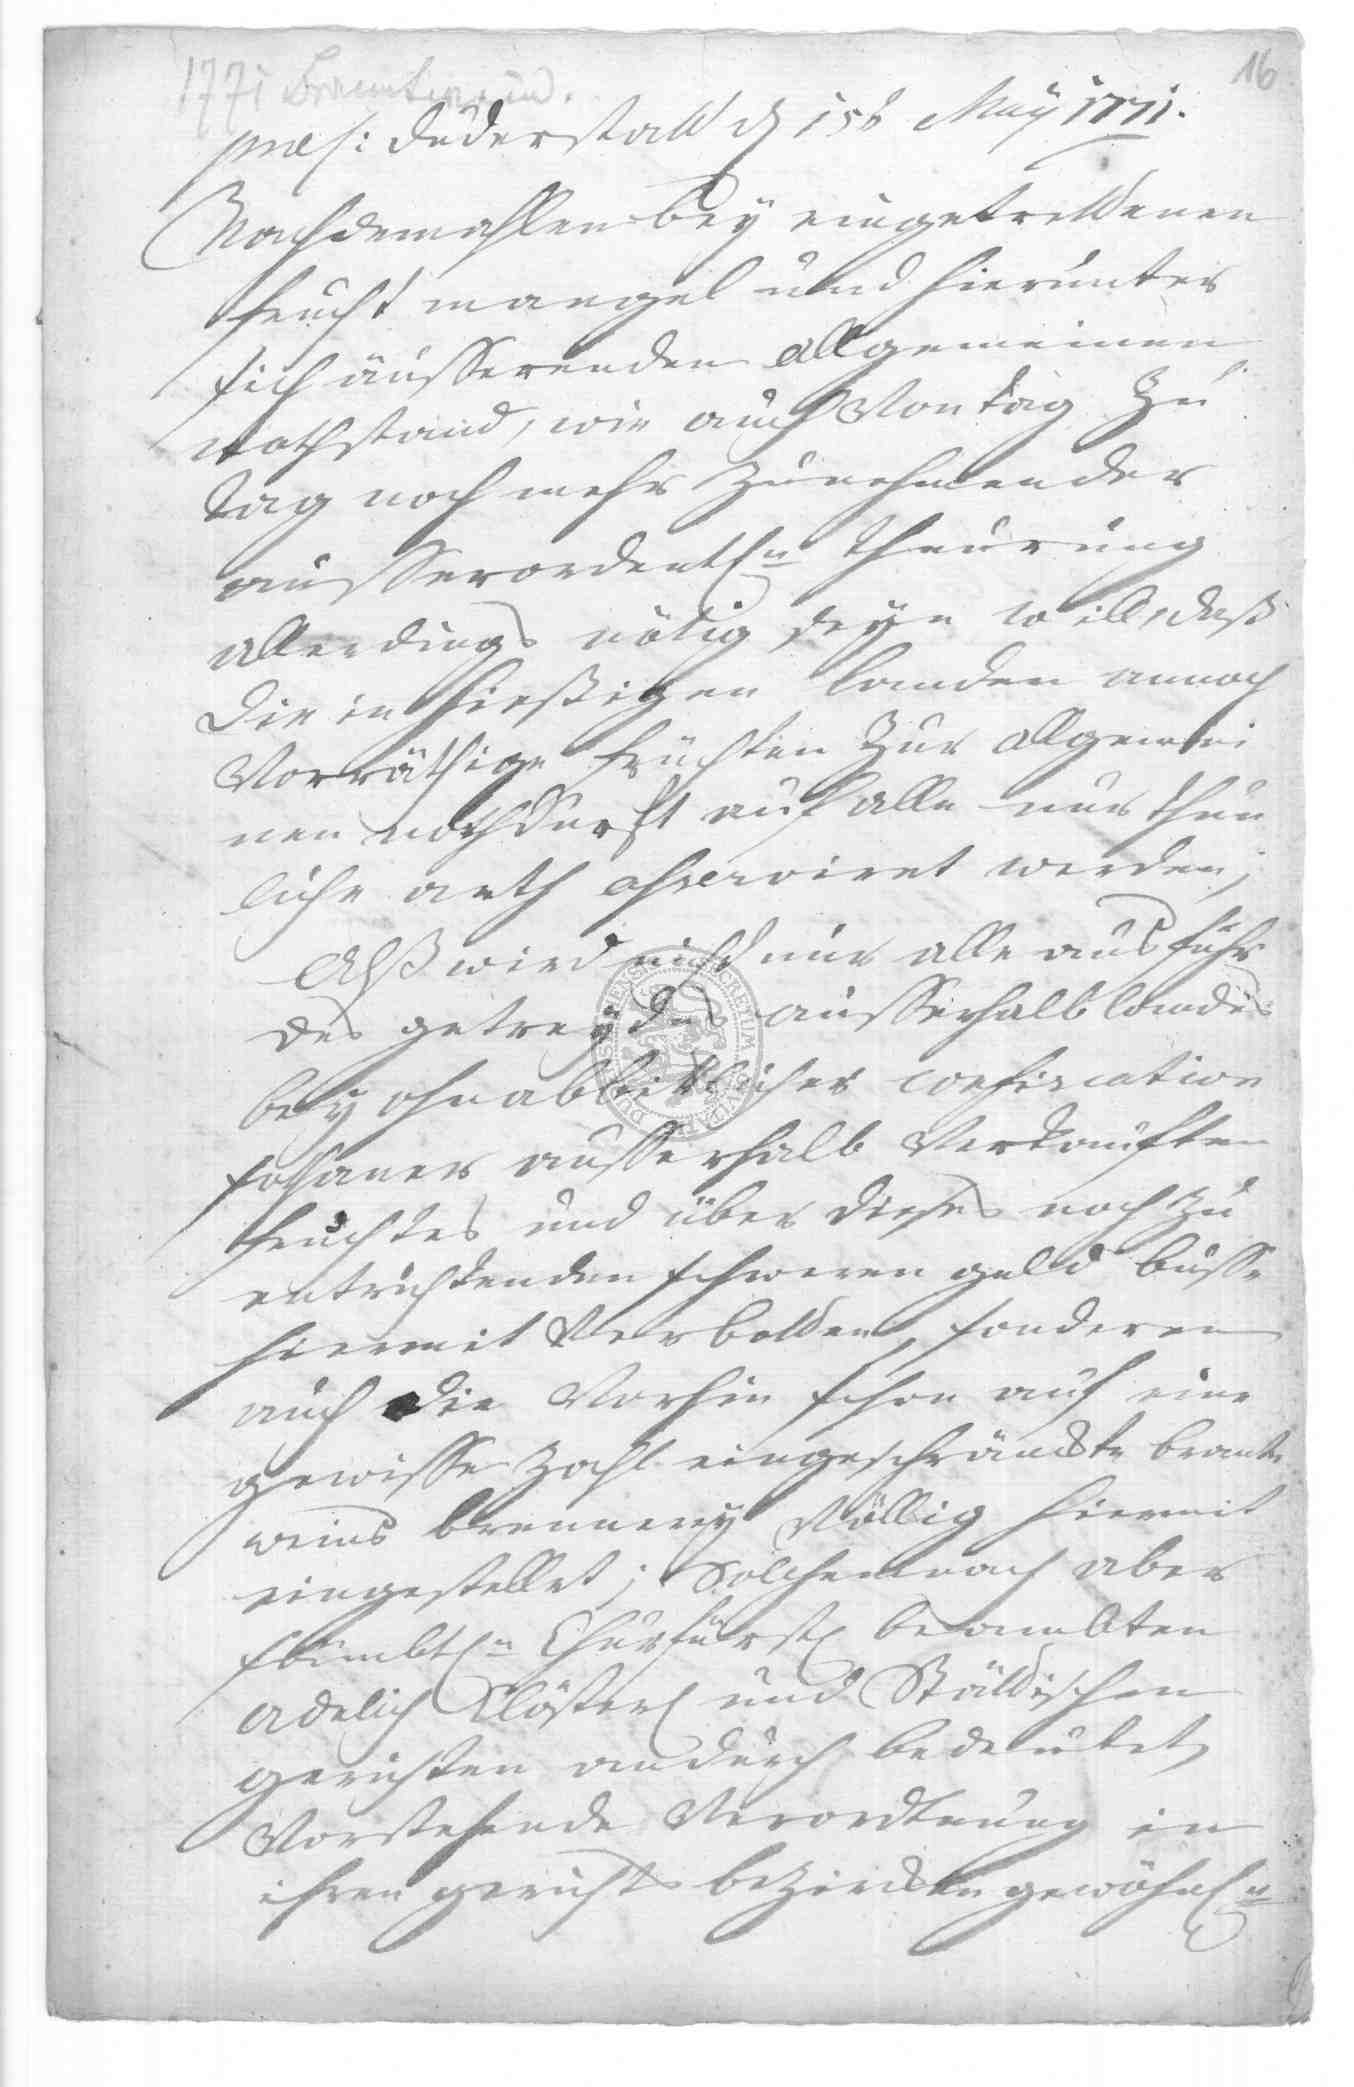 1771 Brantwein.
16
præs: Duderstatt d 15t May 1771.
Nachdemahlen bey eingetrettenen
frucht mangel und hierunter
sich äusserenden allgemeinen
nothstand, wie auch Von tag zu
tag noch mehr zunehmender
ausserordentln theurung
allerdings nötig seyn will, daß
die in hießigen landen annoch
Vorräthige früchten zur allgemei
nen nothdurfft auf alle nur thun
liche arth conserviret werden;
Alß wird nicht nur alle ausfuhr
des getreydes ausserhalb landes
bey ohnabbittlicher confiscation
sothaner ausserhalb Verkauften
fruchtes und über dieses noch zu
entrichtenden schweren geld busse
hiermit Verbotten, sonderen
auch die Vorhin schon auf eine
gewisse zahl eingeschränckte brante
weins brennerey Völlig hiermit
eingestellet; Solchemnach aber
sämbtln Churfürstl beambten
adelich Klösterl und Stättischen
gerichten andurch bedeutet,
Vorstehende Verordtnung in
ihren gerichts bezircken gewöhnln